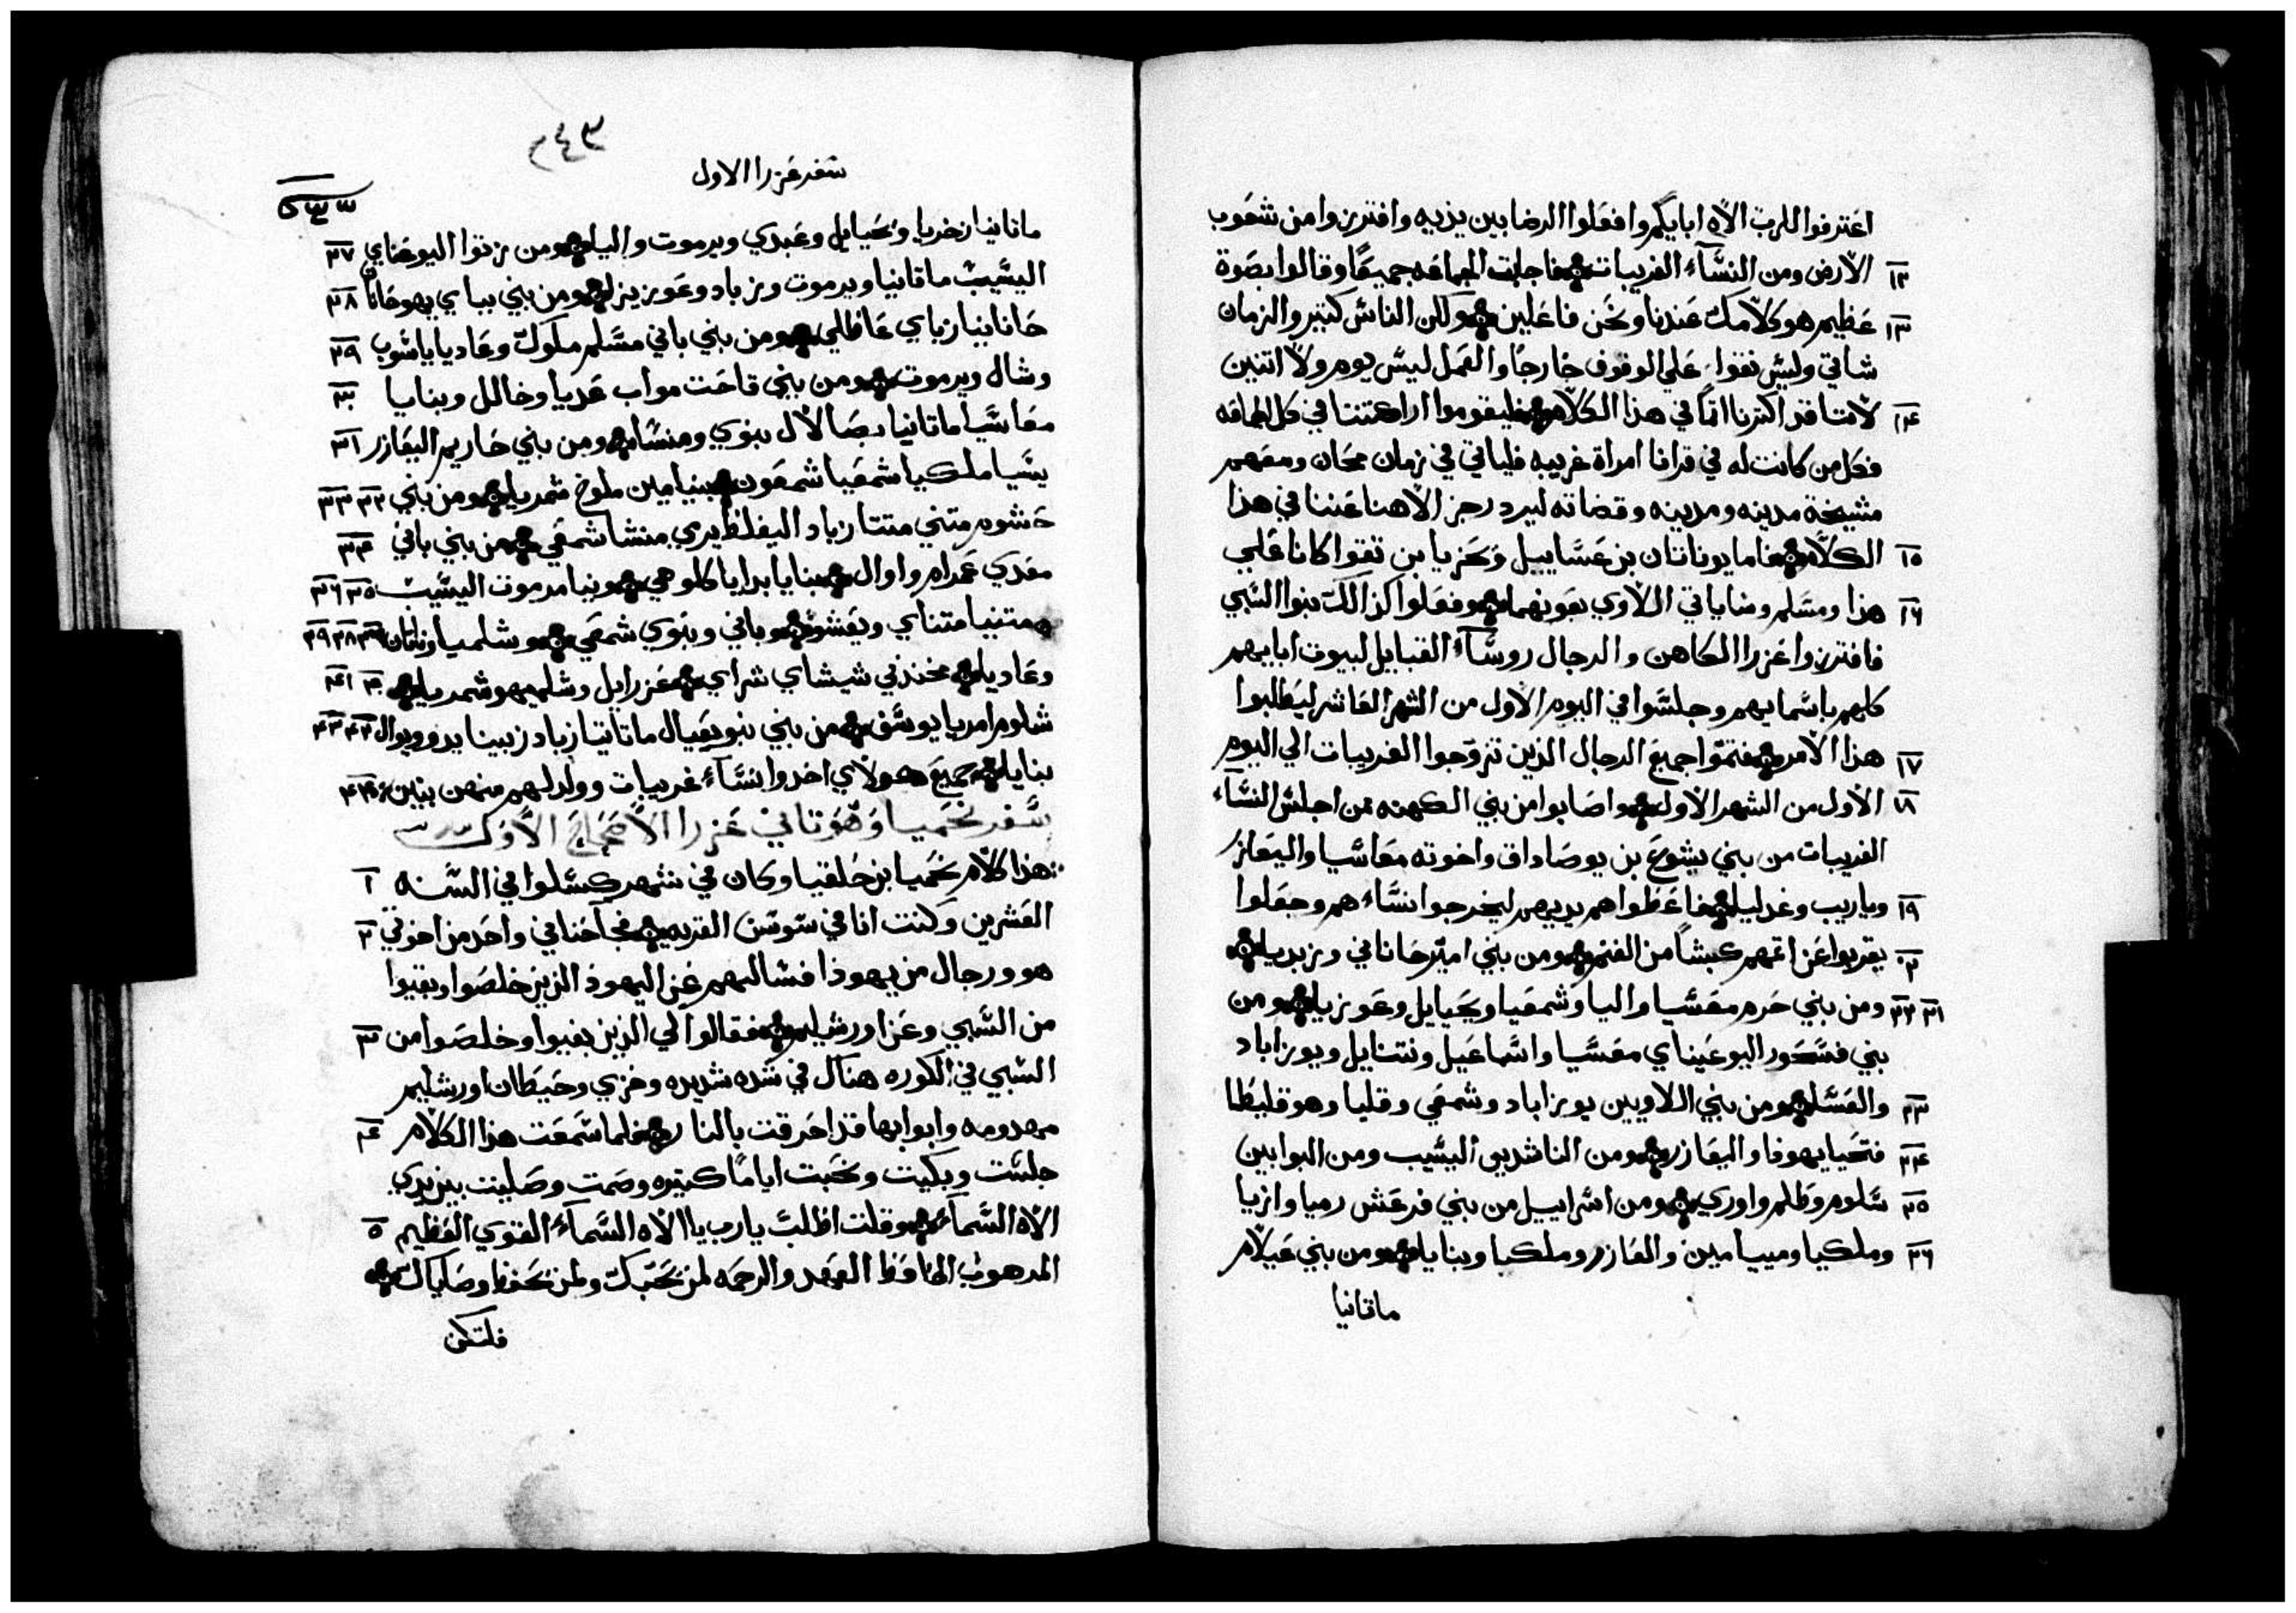 اعترفوا للرب الاه ابايكم وافعلوا الرضا بين يديه وافترزوا من شعوب
١٢ الارض ومن النسآء الغريبات فاجابت الجماعه جميعًا وقالوا بصوة
١٣ عظيم هو كلامك عندنا ونحن فاعلين ولكن الناس كتير والزمان
شاتي وليس نقوا علي الوقوف خارجًا والعمل ليس يوم ولا اتنين
١٤ لاننا قد اكترنا اتمًا في هذا الكلام فليقوموا اراكنتنا في كل الجماعه
فكل من كانت له في قرانا امراة غريبه فلياتي في زمان ومعهم
مشيخة مدينه ومدينه وقضاته ليرد رجز الاهنا عننا في هذا
١٥ الكلام فاما يوناتان بن عساييل وحزيا بن تقوا كانا علي
١٦ هذا ومسلم وساباتي اللاوي يعونهما وفعلوا كذالك بنوا السبي
فافترزوا عزرا الكاهن والرجال روسآء القبايل لبيوت ابايهم
كلهم باسمايهم وجلسوا في اليوم الاول من الشهر العاشر ليطلبوا
١٧ هذا الامر فتموا جميع الرجال الذين تزوجوا الغريبات الي اليوم
١٨ الاول من الشهر الاول واصابوا من بني الكهنه من اجلس النسآء
الغريبات من بني يشوع بن يوصاداق واخوته معاسيا واليعازر
١٩ وياريب وغدليا فاعطوا هم يديهم ليخرجوا نسآء هم وجعلوا
٢٠ يقربوا عن اتمهم كبشًا من الغنم ومن بني امير حاناني وزبديا
٢١ ٢٢ ومن بني حرم معسيا واليا وشمعيا ويحيايل وعوزيا ومن
بني فسحور اليوعيناي معسيا واسماعيل ونتنايل ويوزاباد
٢٣ والعسا ومن بني اللاويين يوزاباد وشمعي وقليا وهو قليطا
٢٤ فتحيا يهوذا واليعازر ومن الناشدين اليسيب ومن البوابين
٢٥ سلوم وطلم واوري ومن اسراييل من بني فرعش رميا وازيا
٢٦ وملكيا ومييامين والعازر وملكيا وبنايا ومن بني عيلام
ماتانيا
٢٤٣
سفر عزرا الاول
ماتانيا زخريا ويحيايل وعبدي ويرموت واليا ومن زتوا اليوعناي ٢٧
اليسيب ماتانيا ويرموت وزباد وعوزيزا ومن بني بباي يهوحانان ٢٨
حانانيا زباي عاظلي ومن بني باني مسلم ملوك وعاديا ياسوب ٢٩
وشال ويرموت ومن بني قاحت مواب عديا وخالل وبنايا ٣٠
معاسيا ماتانيا بصالال بنوي ومنسا ومن بني حاريم اليعازر ٣١
يسيا ملكيا شمعيا شمعون بنيامين ملوخ شمريا ومن بني ٣٢ ٣٣
حشوم متني متتا زباد اليفلظ يري منشا شمعي من بني باني ٣٤
معدي عمرام واوال بنايا بدايا كلوهي وينا مرموت اليسيب ٣٥ ٣٦
متنيا متناي ويعشو وباني وبنوي شمعي وشلميا وناتان ٣٧ ٣٨ ٣٩
وعاديا مخندني شيشاي شراي عزرايل وشلميهو شمريا ٤٠ ٤١
شلوم امريا يوسف من بني نبو يعيال ماتاتيا زباد زبينا يدو ويوال ٤٢ ٤٣
بنايا جميع هولاي اخدوا نسآء غريبات وولد لهم منهن بنين ٤٤
سفر نحميا وهو تاني عزرا الاصحاح الاول
هذا كلام نحميا بن حلقيا وكان في شهر كسلوا في السنه ١
العشرين وكنت انا في سوسن القريه فجآ حناني واحد من اخوتي ٢
هو ورجال من يهوذا فسالتهم عن اليهود الذين خلصوا وبقيوا
من السبي وعن اورشليم فقالوا لي الذين بقيوا وخلصوا من ٣
السبي في الكوره هناك في شده شديده وخزي وحيطان اورشليم
مهدومه وابوابها قد احرقت بالنار فلما سمعت هذا الكلام ٤
جلست وبكيت ونحبت ايامًا كتيره وصمت وصليت بين يدي
الاه السمآء وقلت اطلب يارب يا الاه السمآء القوي العظيم ٥
المرهوب الحافظ العهد والرحمه لمن يحبك ولمن يحفظ وصاياك
فلتكن